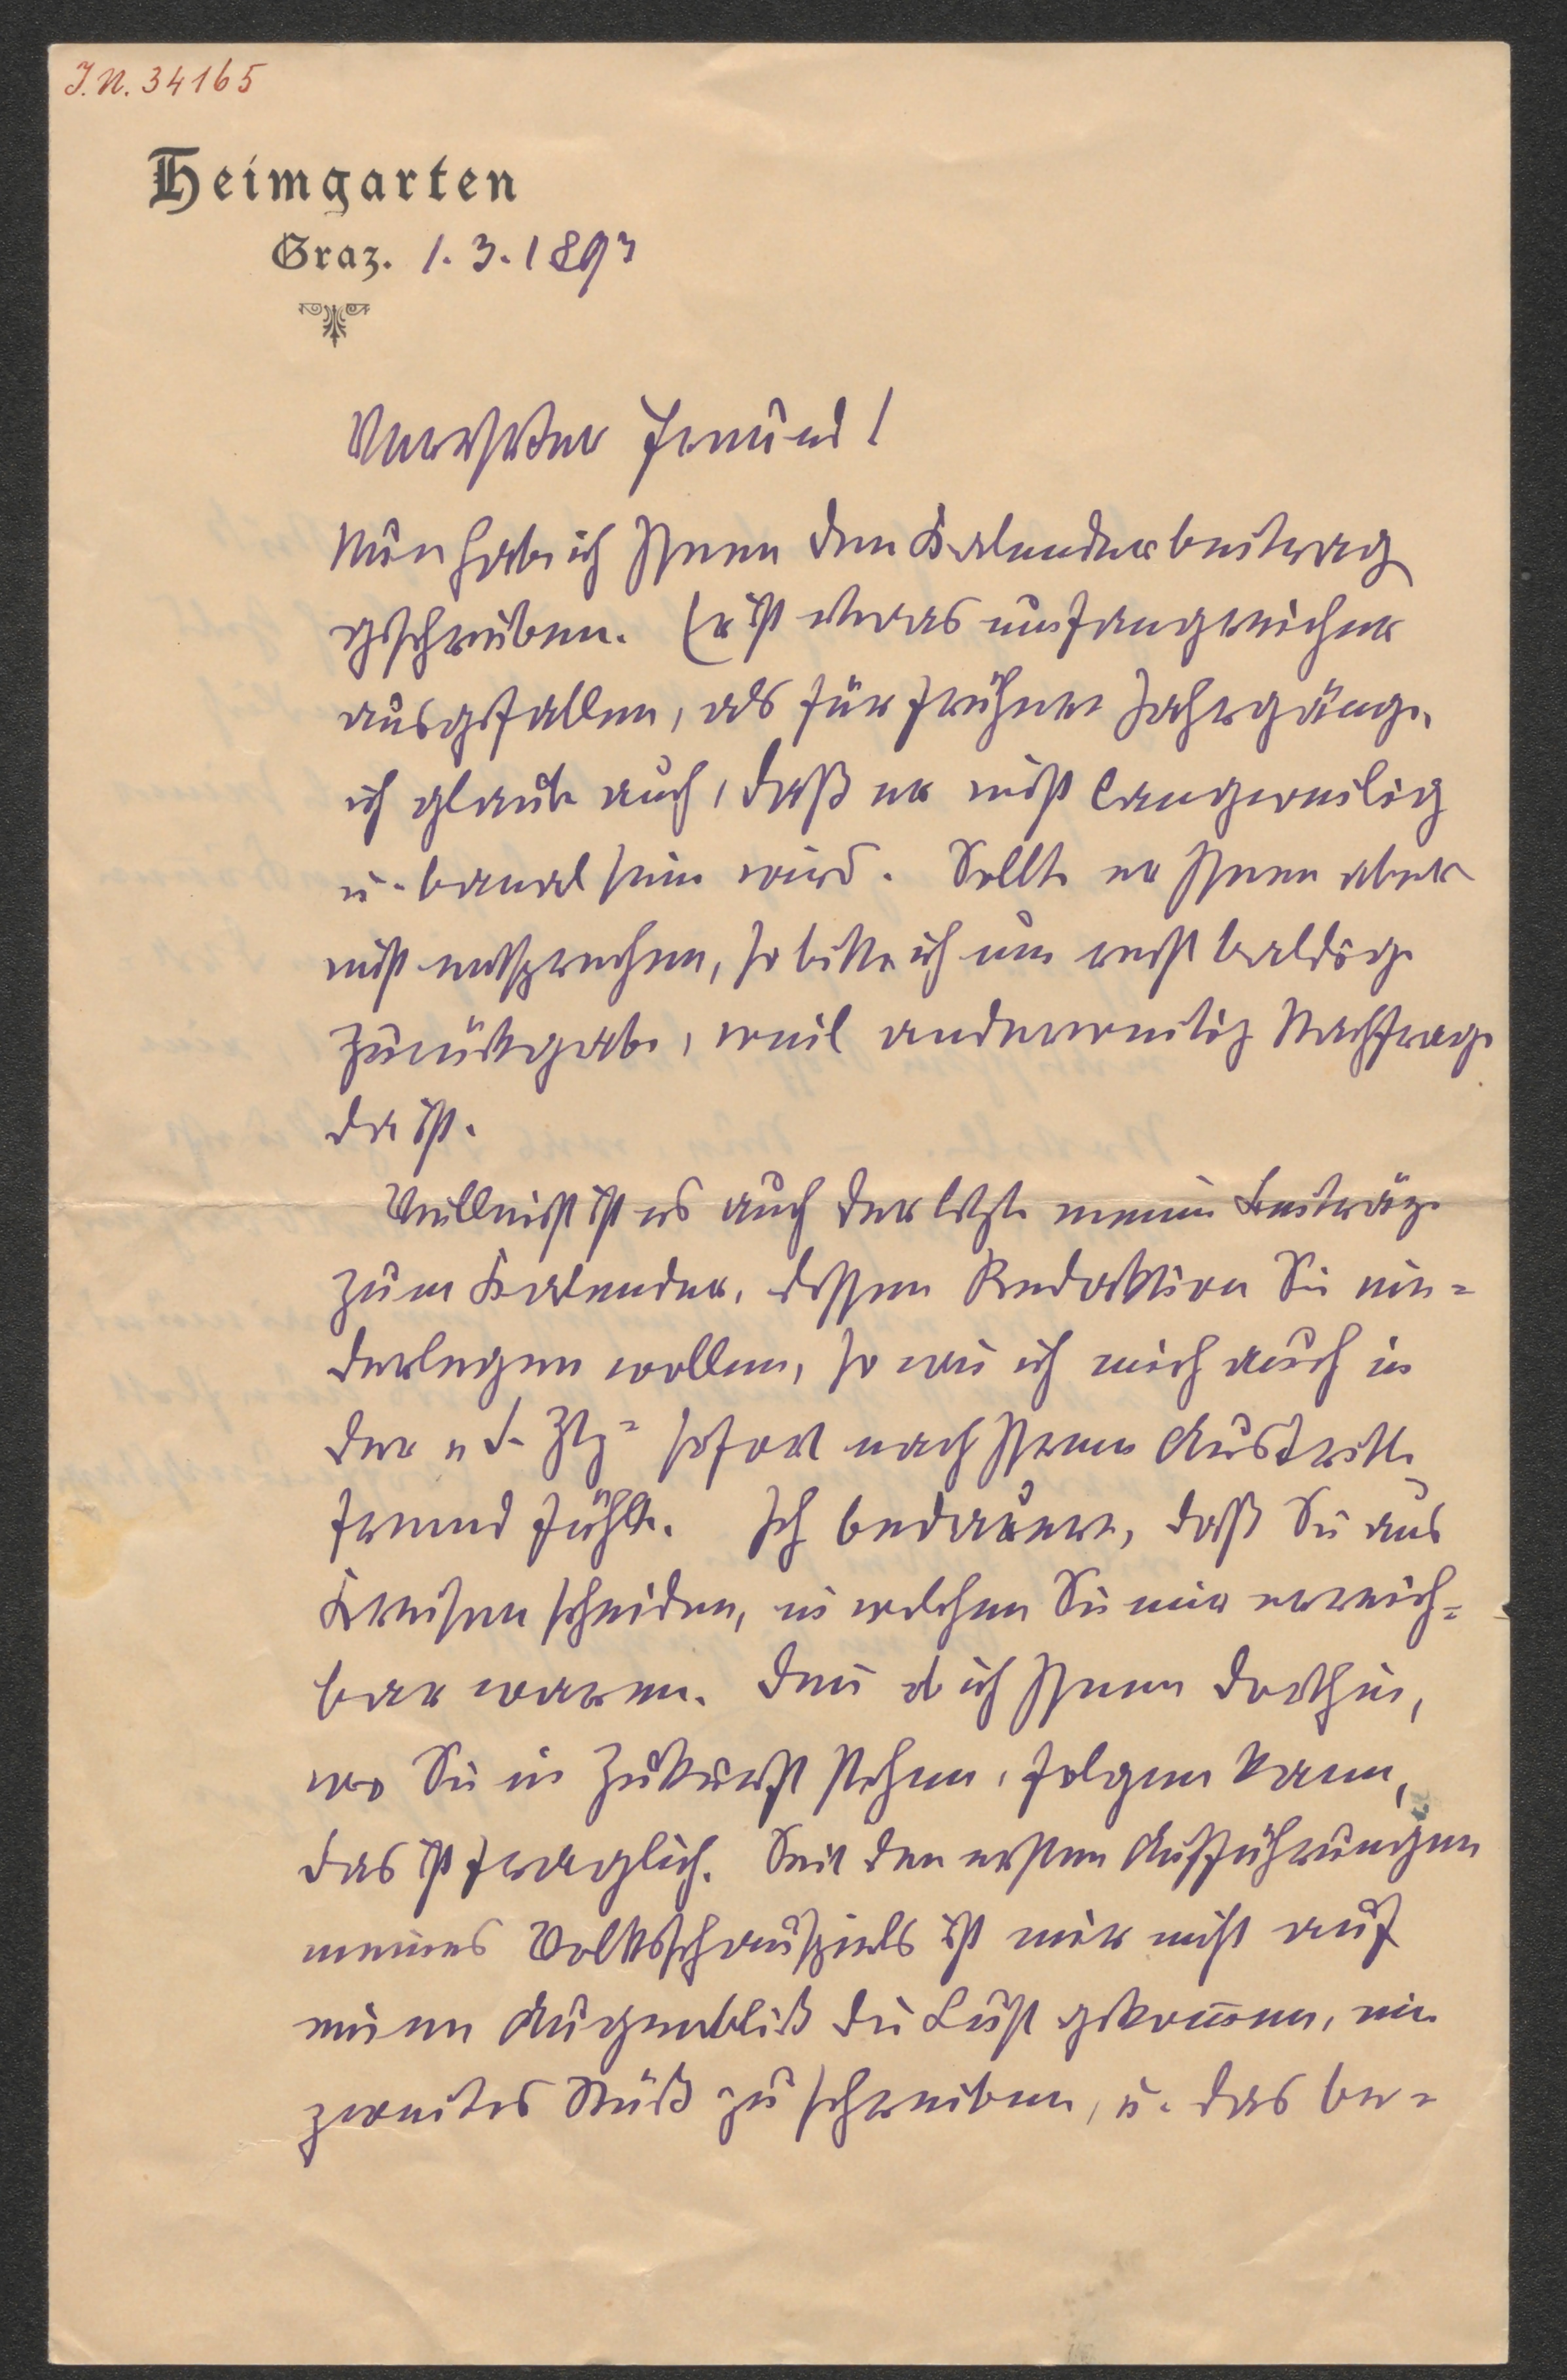 J.N. 34165
Heimgarten
Graz. 1.3.1893
Verehrter Freund!
Nun habe ich Ihnen den Kalenderbeitrag
geschrieben. Er ist etwas umfangreicher
ausgefallen, als für frühere Jahrgänge,
ich glaube auch, daß er nicht langweilig
u. banal sein wird. Sollte er Ihnen aber
nicht entsprechen, so bitte ich um recht baldige
Zurückgabe, weil anderweitig Nachfrage
da ist.
Vielleicht ist es auch der letzte meiner Beiträge
zum Kalender, dessen Redaktion Sie nie=
derlegen wollen, so wie ich mich auch in
der „d. Ztg“ sofort nach Ihrem Austritte
fremd fühlte. Ich bedauere, daß Sie aus
Kreisen scheiden, in welchen Sie mir erreich=
bar waren. Denn ob ich Ihnen dorthin,
wo Sie in Zukunft stehen, folgen kann,
das ist fraglich. Seit den ersten Aufführungen
meines Volksschauspiels ist mir nicht auf
einen Augenblick die Lust gekommen, ein
zweites Stück zu schreiben, u. das be=